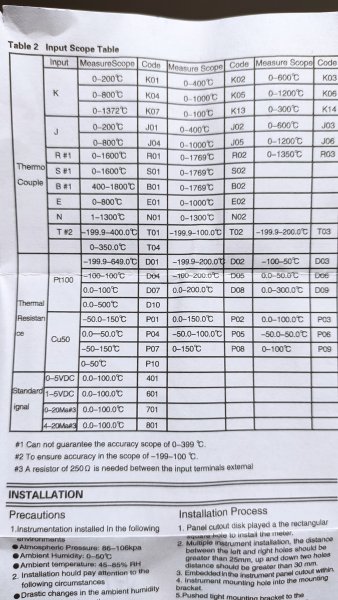 Table 2 Input Scope Table
Input MeasureScope Code Measure Scope Code Measure Scope Code
K 0~200℃ K01 0~400℃ K02 0~600℃ K03
0~800℃ K04 0~1000℃ K05 0~1200℃ K06
0~1372℃ K07 0~100℃ K13 0~300℃ K14
J 0~200℃ J01 0~400℃ J02 0~600℃ J03
0~800℃ J04 0~1000℃ J05 0~1200℃ J06
R #1 0~1600℃ R01 0~1769℃ R02 0~1350℃ R03
Thermo Couple
S #1 0~1600℃ S01 0~1769℃ S02
B #1 400~1800℃ B01 0~1769℃ B02
E 0~800℃ E01 0~1000℃ E02
N 1~1300℃ N01 0~1300℃ N02
T #2 -199.9~400.0℃ T01 -199.9~100.0℃ T02 -199.9~200.0℃ T03
0~350.0℃ T04
Pt100 -199.9~649.0℃ D01 -199.9~200.0℃ D02 -100~50℃ D03
-100~100℃ D04 -100~200.0℃ D05 0.0~50.0℃ D06
0.0~100.0℃ D07 0.0~200.0℃ D08 0.0~300.0℃ D09
0.0~500℃ D10
Thermal Resistan ce
Cu50 -50.0~150℃ P01 0.0~150.0℃ P02 0.0~100.0℃ P03
0.0~50.0℃ P04 -50.0~100.0℃ P05 -50.0~50.0℃ P06
-50~150℃ P07 0~150℃ P08 0~100℃ P09
0~50℃ P10
Standard ignal
0~5VDC 0.0~100.0℃ 401
1~5VDC 0.0~100.0℃ 601
0~20Ma#3 0.0~100.0℃ 701
4~20Ma#3 0.0~100.0℃ 801
#1 Can not guarantee the accuracy scope of 0~399 ℃.
#2 To ensure accuracy in the scope of -199~100 ℃.
#3 A resistor of 250Ω is needed between the input terminals external
INSTALLATION
Precautions
1.Instrumentation installed in the following
environments
●Atmospheric Pressure: 86~106kpa
●Ambient Humidity: 0~50℃
●Ambient temperature: 45~85% RH
2. Installation hould pay attention to the
following circumstances
●Drastic changes in the ambient humidity
Installation Process
1. Panel cutout disk played a the rectangular
square hole to install the meter.
2. Multiple instrument installation, the distance
between the left and right holes should be
greater than 25mm, up and down two holes
distance should be greater than 30 mm.
3. Embedded in the instrument panel cutout within.
4. Instrument mounting hole into the mounting
bracket.
5.Pushed tight mounting bracket to the